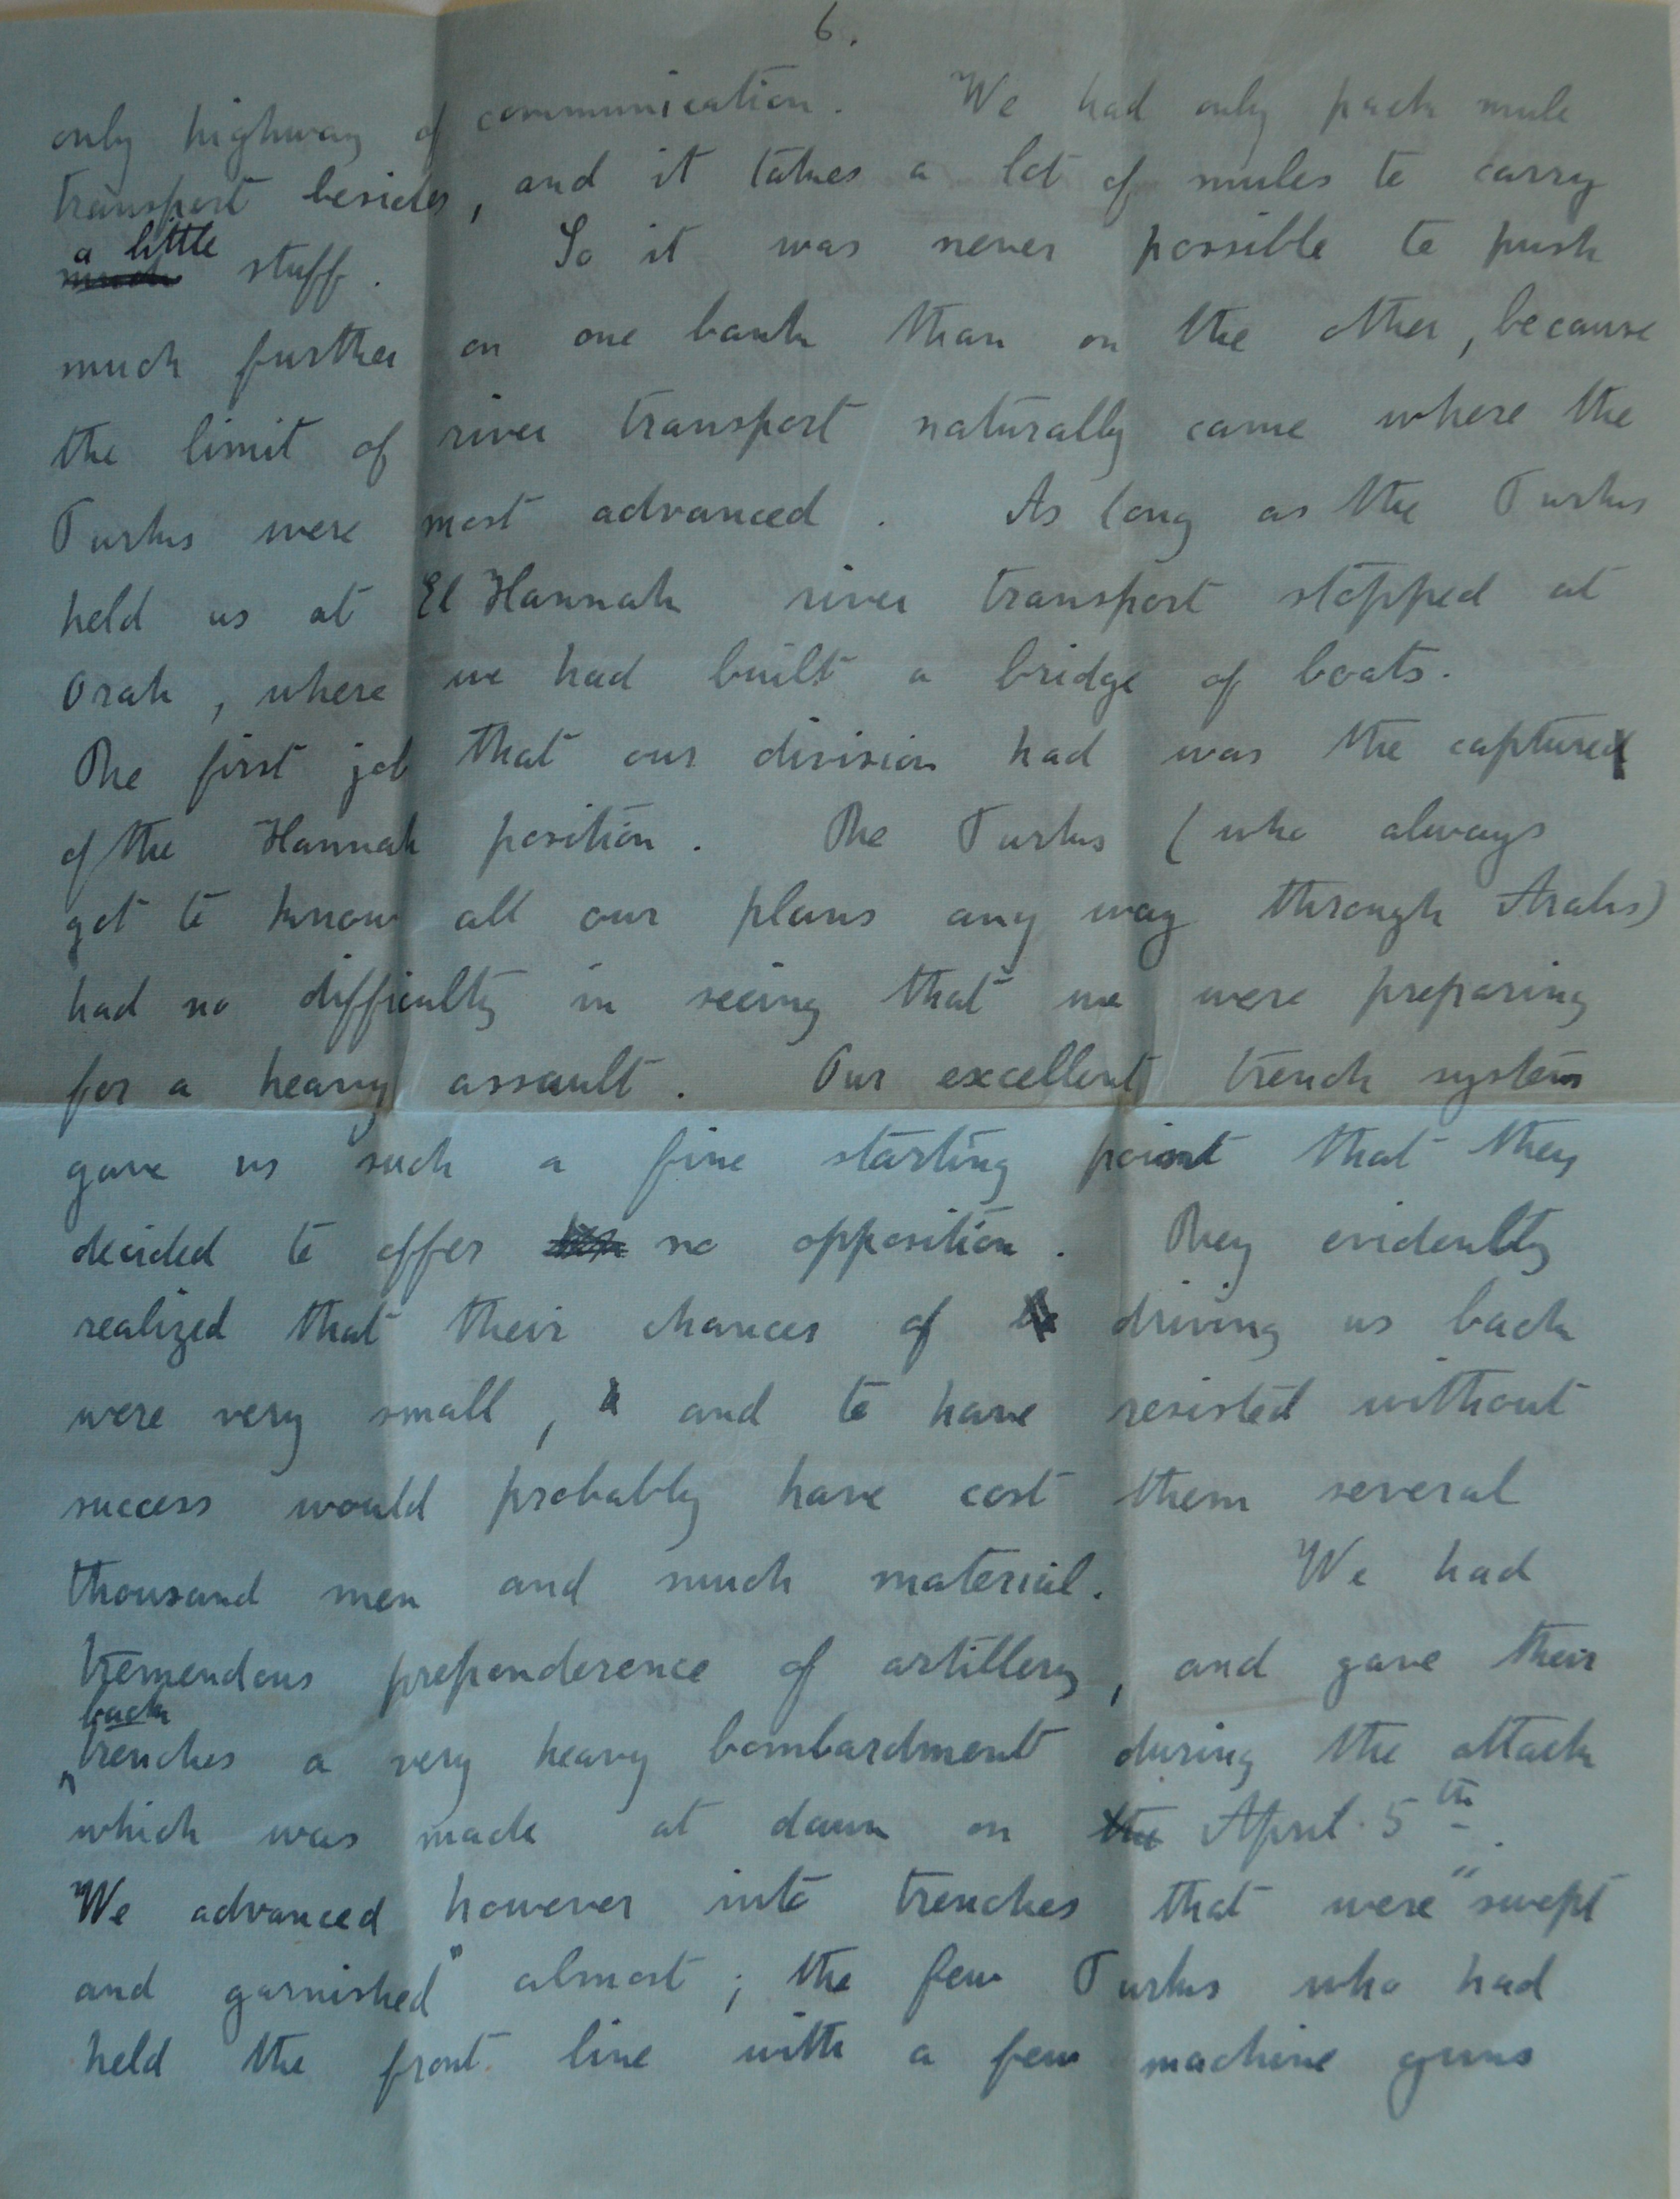 6.
only highway of communication. We had only pack mule
transport besides, and it takes a lot of mules to carry
a little
much stuff. So it was never possible to push
much further on one bank than on the other, because
the limit of river transport naturally came where the
Turks were most advanced. As long as the Turks
held us at El Hannah river transport stopped at
Orah, where we had built a bridge of boats.
The first job that our division had was the capture
of the Hannah position. The Turks (who always
get to know all our plans any way through Arabs)
had no difficulty in seeing that we were preparing
for a heavy assault. Our excellent trench system
gave us such a fine starting point that they
decided to offer no opposition. They evidently
realized that their chances of driving us back
were very small, and to have resisted without
success would probably have cost them several
thousand men and much material. We had
tremendous preponderence of artillery, and gave their
back
trenches a very heavy bombardment during the attack
which was made at dawn on the April 5th.
We advanced however into trenches that were "swept
and garnished" almost; the few Turks who had
held the front line with a few machine guns